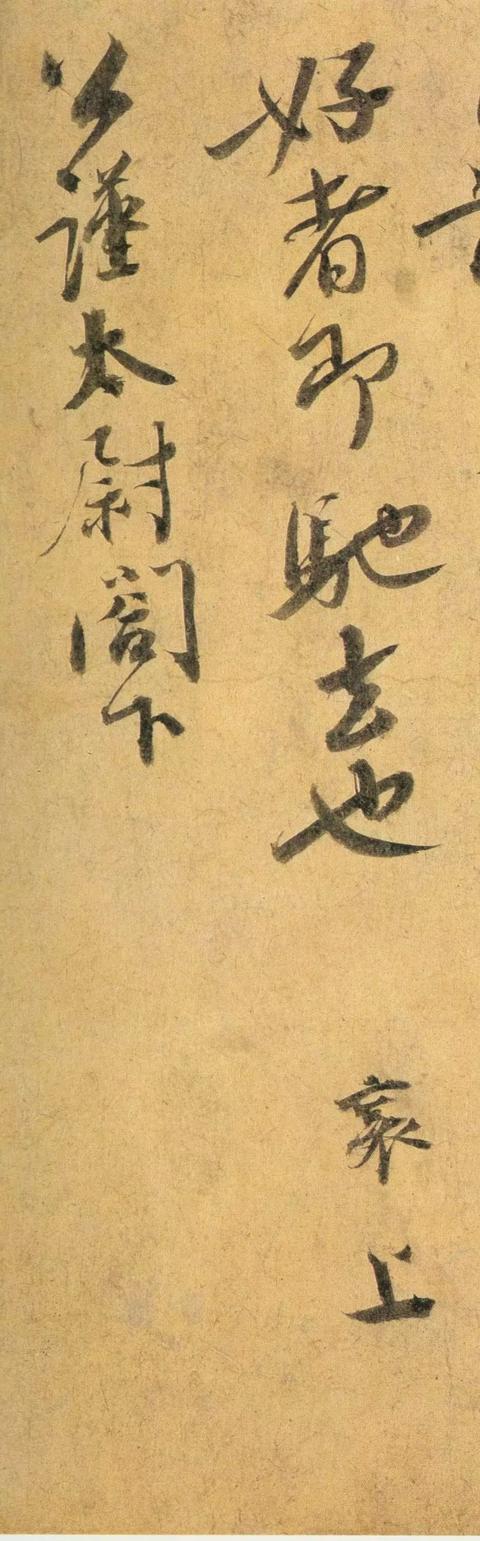 好者即馳去也 襄上
公謹太尉閣下